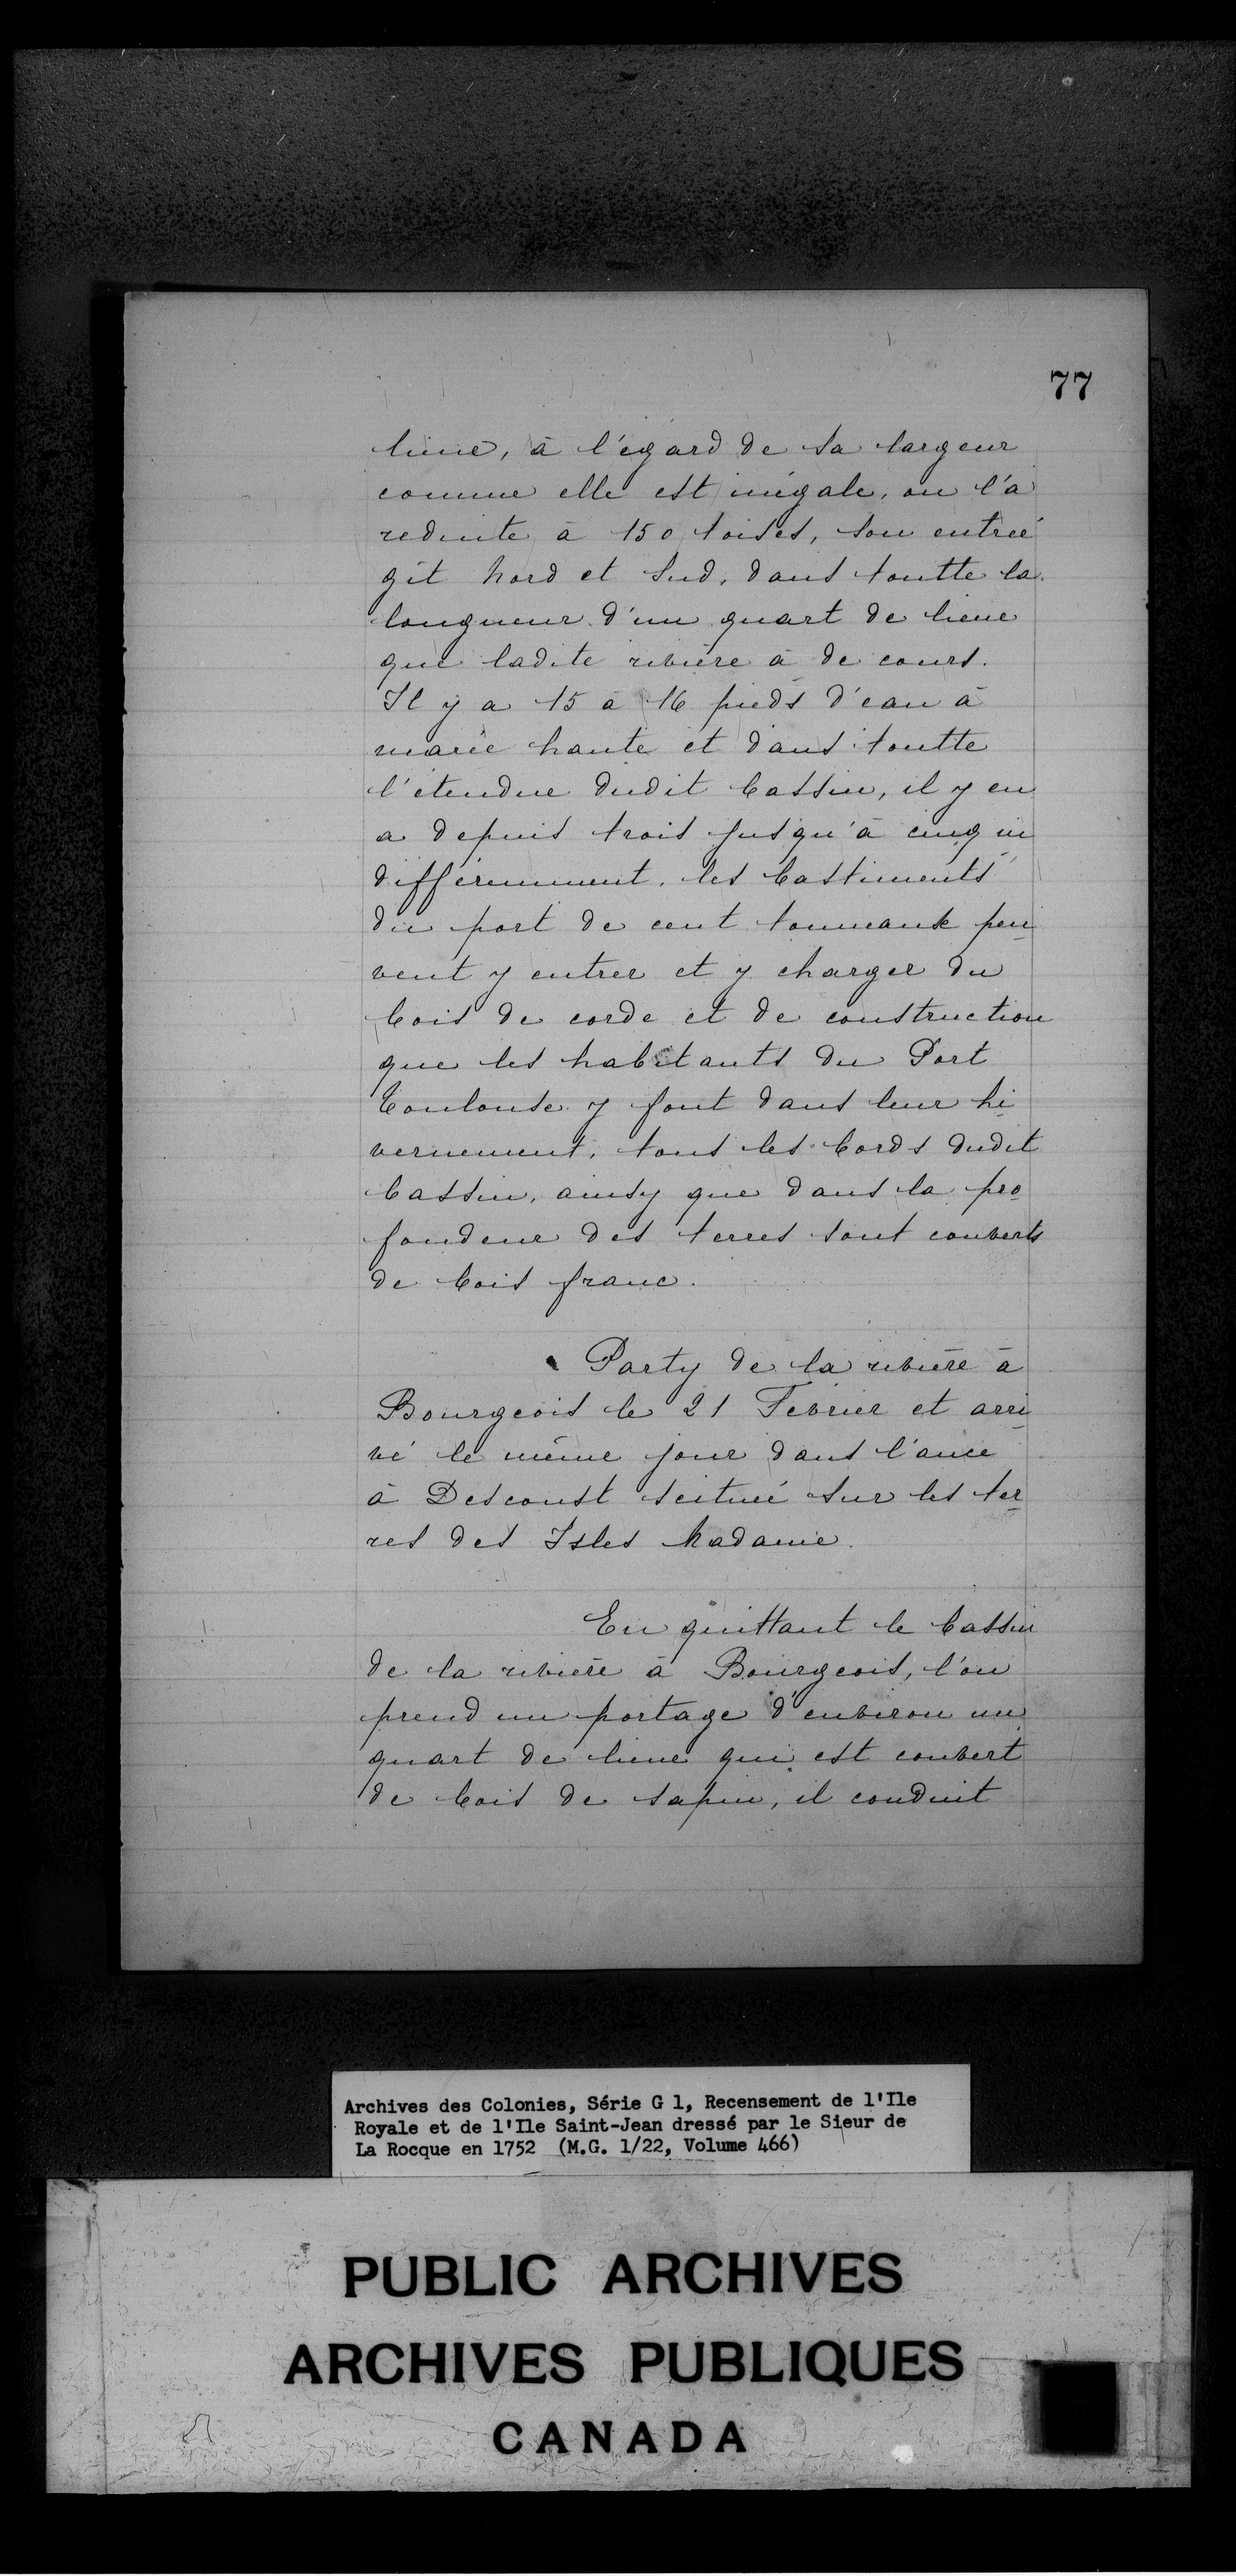 77
lieue, à l'égard de sa largeur
comme elle est inégale, on l'a
reduite à 150 toises, son entrée
gît Nord et Sud, dans toutte la
longueur d'un quart de lieue
que ladite rivière à de cours.
Il y a 15 à 16 pieds d'eau à
marée haute et dans toutte
l'étendue dudit bassin, il y en
a depuis trois jusqu'à cinq in
différemment, les bastiments
du port de cent tonneaux peu
vent y entrer et y charger du
bois de corde et de construction
que les habitants du Port
Toulouse y font dans leur hi
vernement, tous les bords dudit
bassin, ainsy que dans la pro
fondeur des terres sont couverts
de bois franc.
Party de la rivière à
Bourgeois le 21 Février et arri
vé le même jour dans l'ance
à Descoust scituée sur les ter
res des Isles Madame.
En quittant le bassin
de la rivière à Bourgeois, l'on
prend un portage d'environ un
quart de lieue qui est couvert
de bois de sapin, il conduit
Archives des Colonies, Série G 1, Recensement de l'Ile
Royale et de l'Ile Saint-Jean dressé par le Sieur de
La Rocque en 1752 (M.G. 1/22, Volume 466)
PUBLIC ARCHIVES
ARCHIVES PUBLIQUES
CANADA